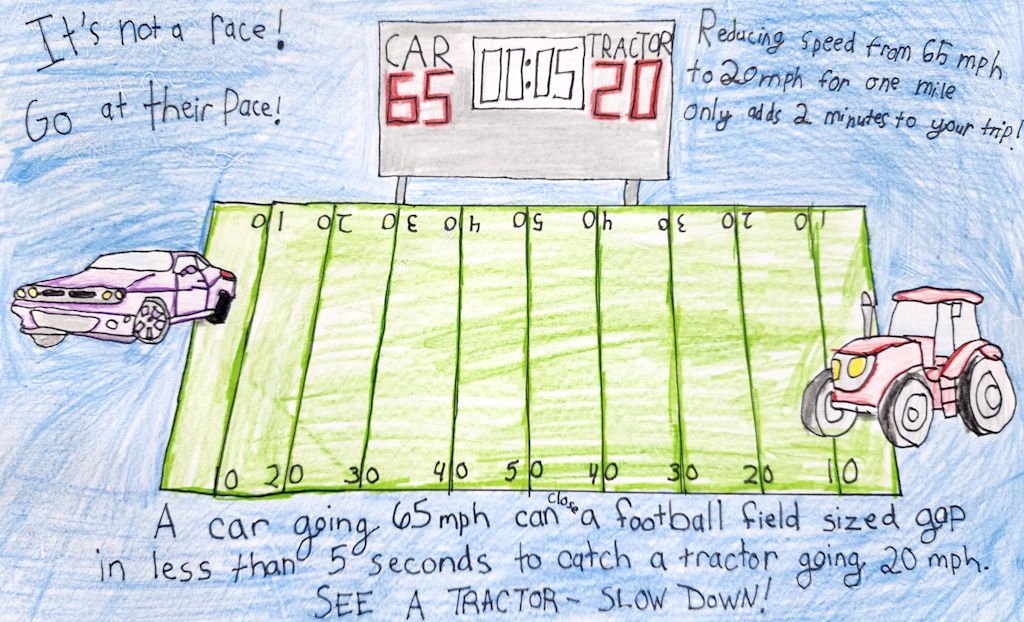 It's not a race!
Go at their Pace!
CAR 00:05 TRACTOR
65 20
Reducing speed from 65 mph
to 20mph for one mile
only adds 2 minutes to your trip!
10 20 30 40 50 40 30 20 10
10 20 30 40 50 40 30 20 10
A car going 65mph can close a football field sized gap
in less than 5 seconds to catch a tractor going 20 mph.
SEE A TRACTOR - SLOW DOWN!